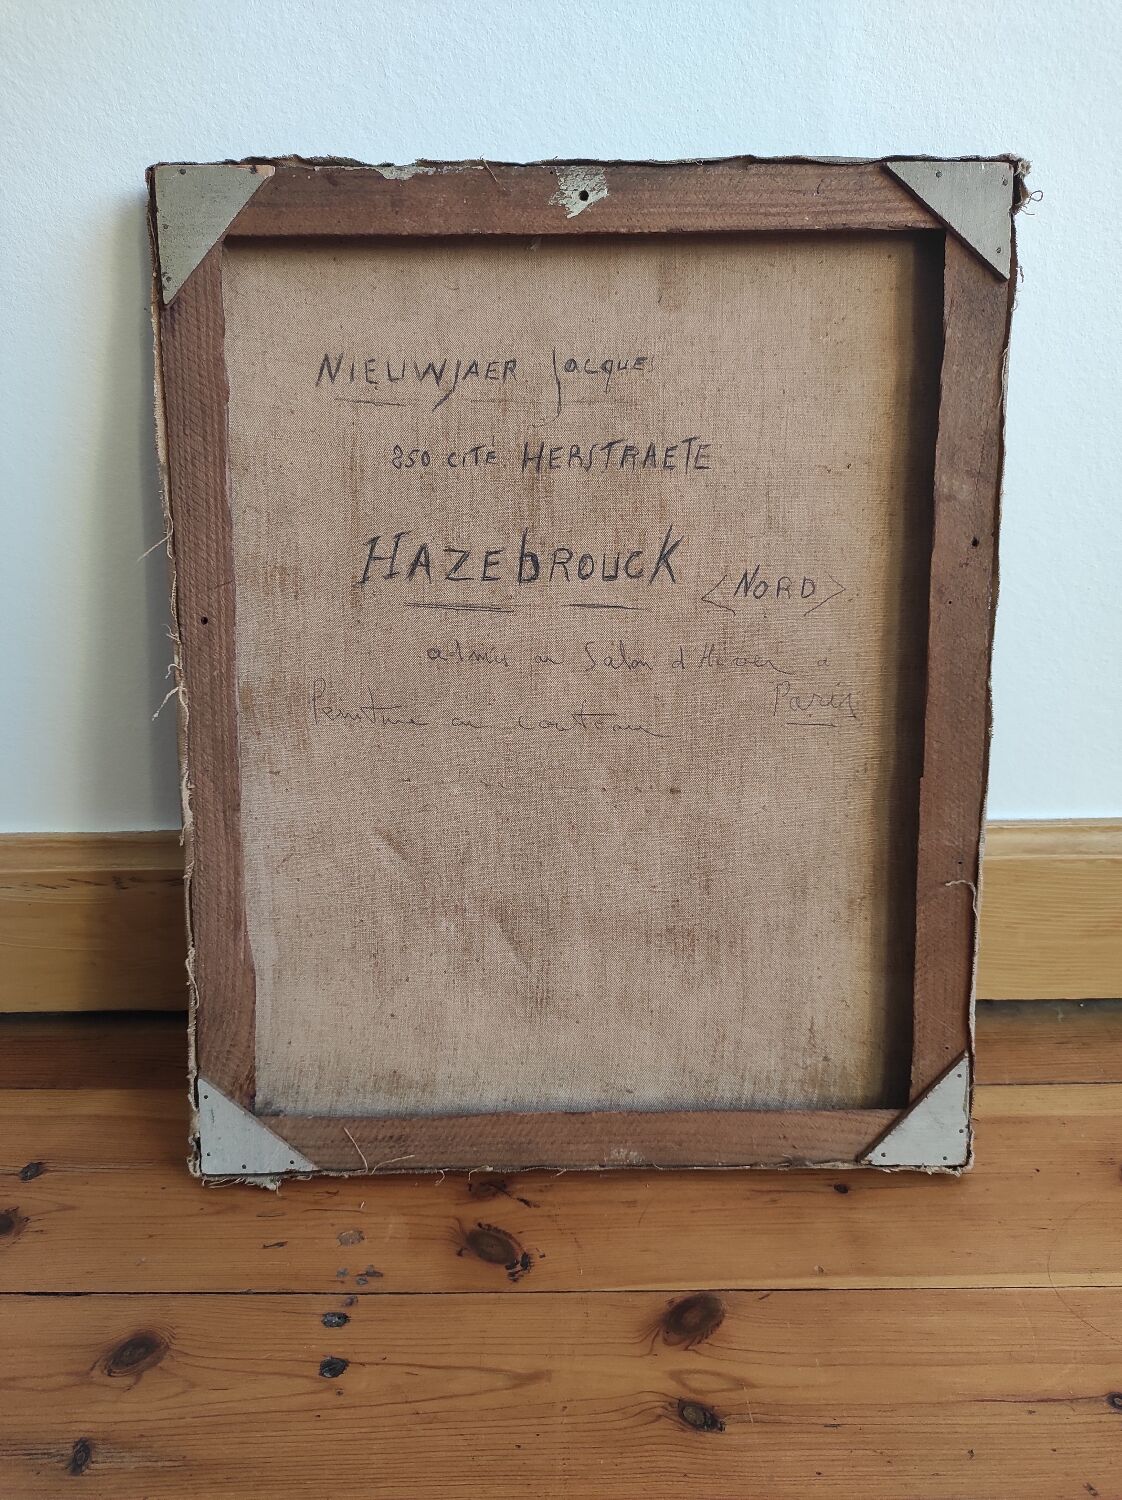 NIEUWJAER Jacques
850 CITÉ HERSTRAETE
HAZEbROUCK
<NORD>
admis au Salon d'Hiver à
Paris
Peinture au couteau